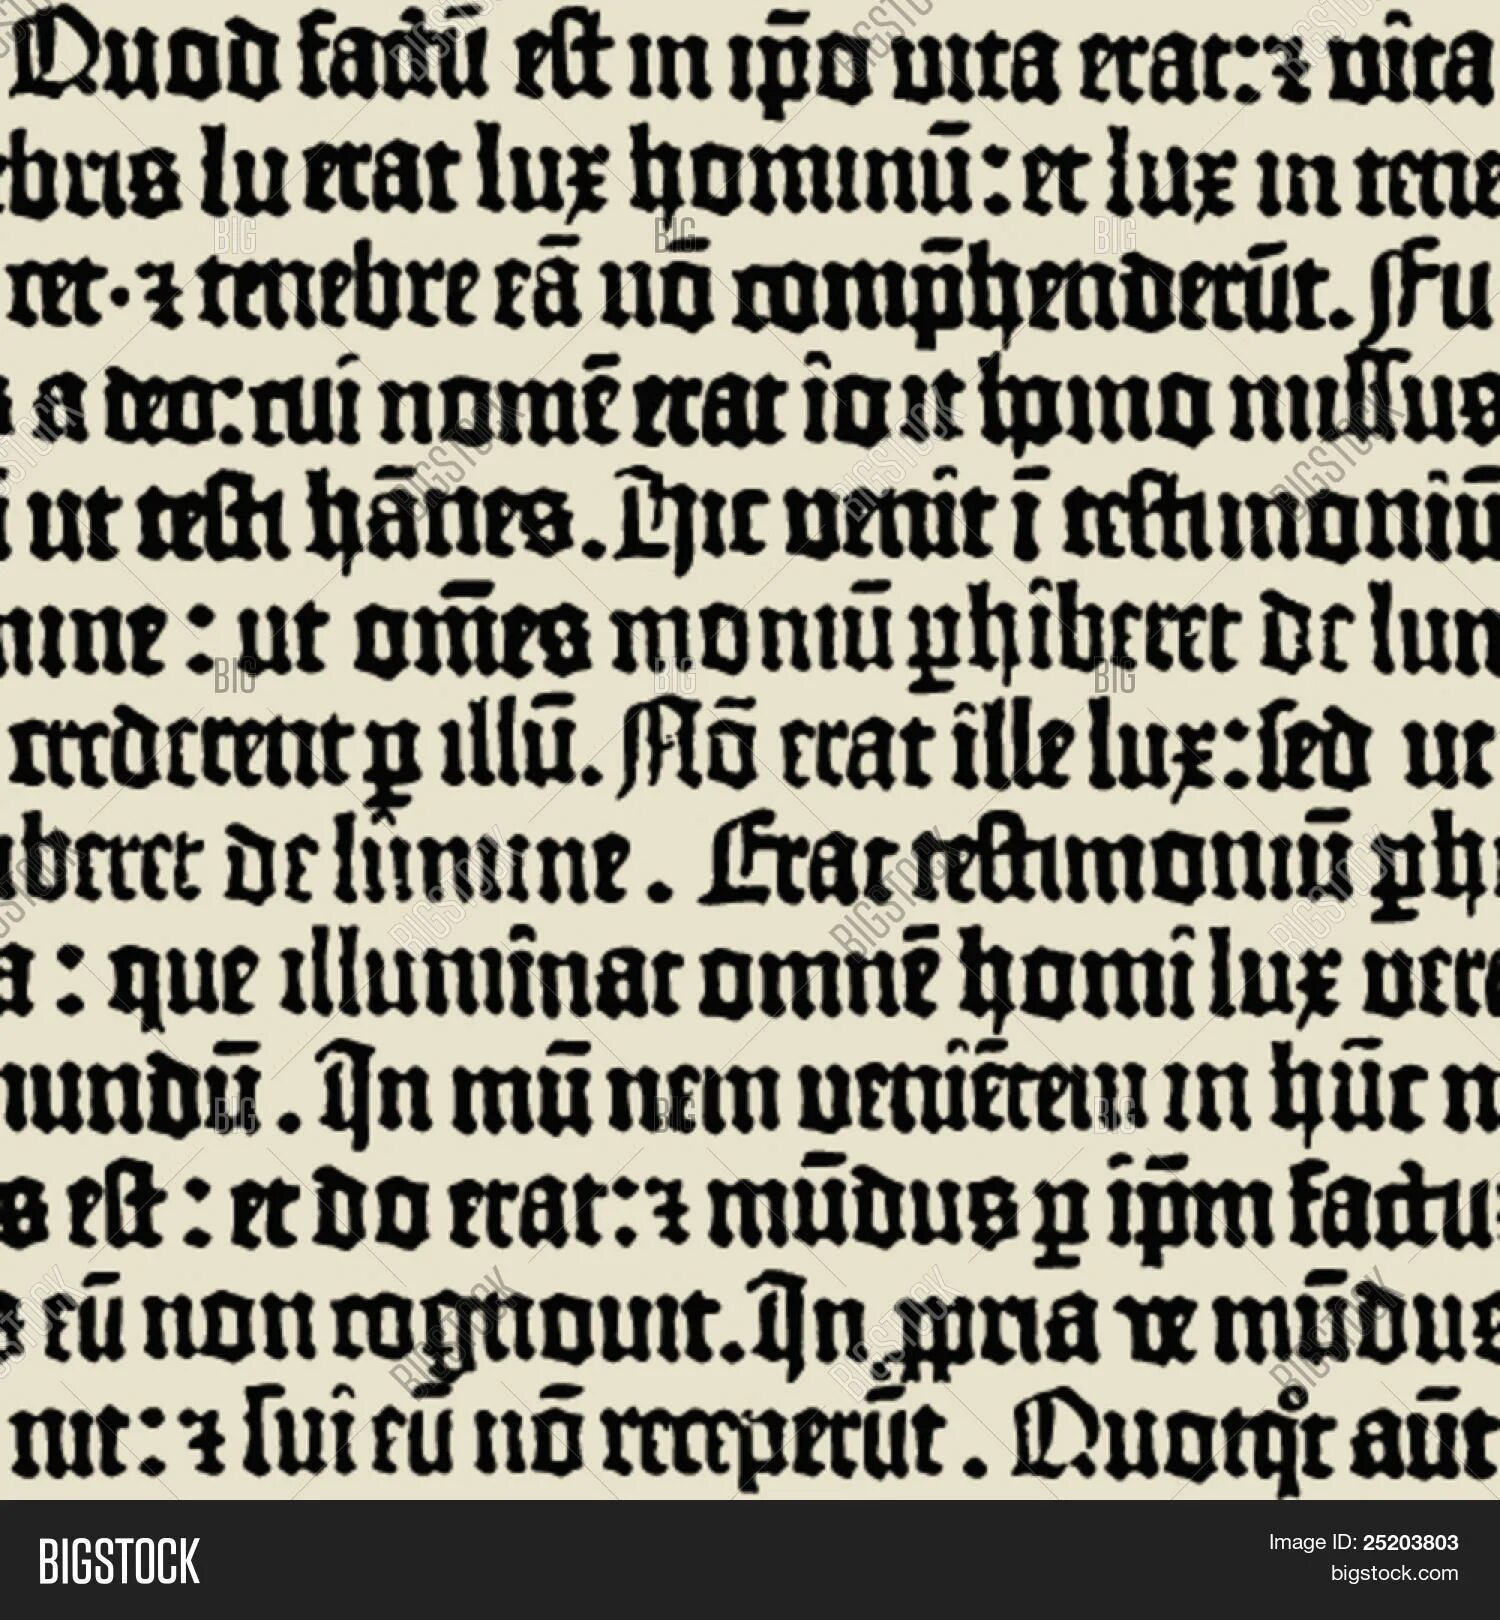 Quod factū est in ip̄o uita erat: ⁊ uîta
ebris lu erat lux hominū: et lux in tene
cet. ⁊ tenebre eā nō comp̄henderūt. Fu
s a deo: cui nomē erat îo it homo missus
i ut testi hānes. Hic uenît ī testimoniū
mine: ut om̄es moniū ꝑhîberet de lum
crederent ꝑ illū. Nō erat îlle lux: sed ut
iberet de lumine. Erat testimoniū ꝑhi
a: que illumînat omnē homî lux uera
mundū. In mū nem uenîētem in hūc m
s est: et do erat: ⁊ mūdus ꝑ îp̄m factus
s eū non cognouit. In ꝓpria ue mūdus
nit: ⁊ suî eū nō receperūt. Quotqͦt aūt
BIGSTOCK
Image ID: 25203803
bigstock.com